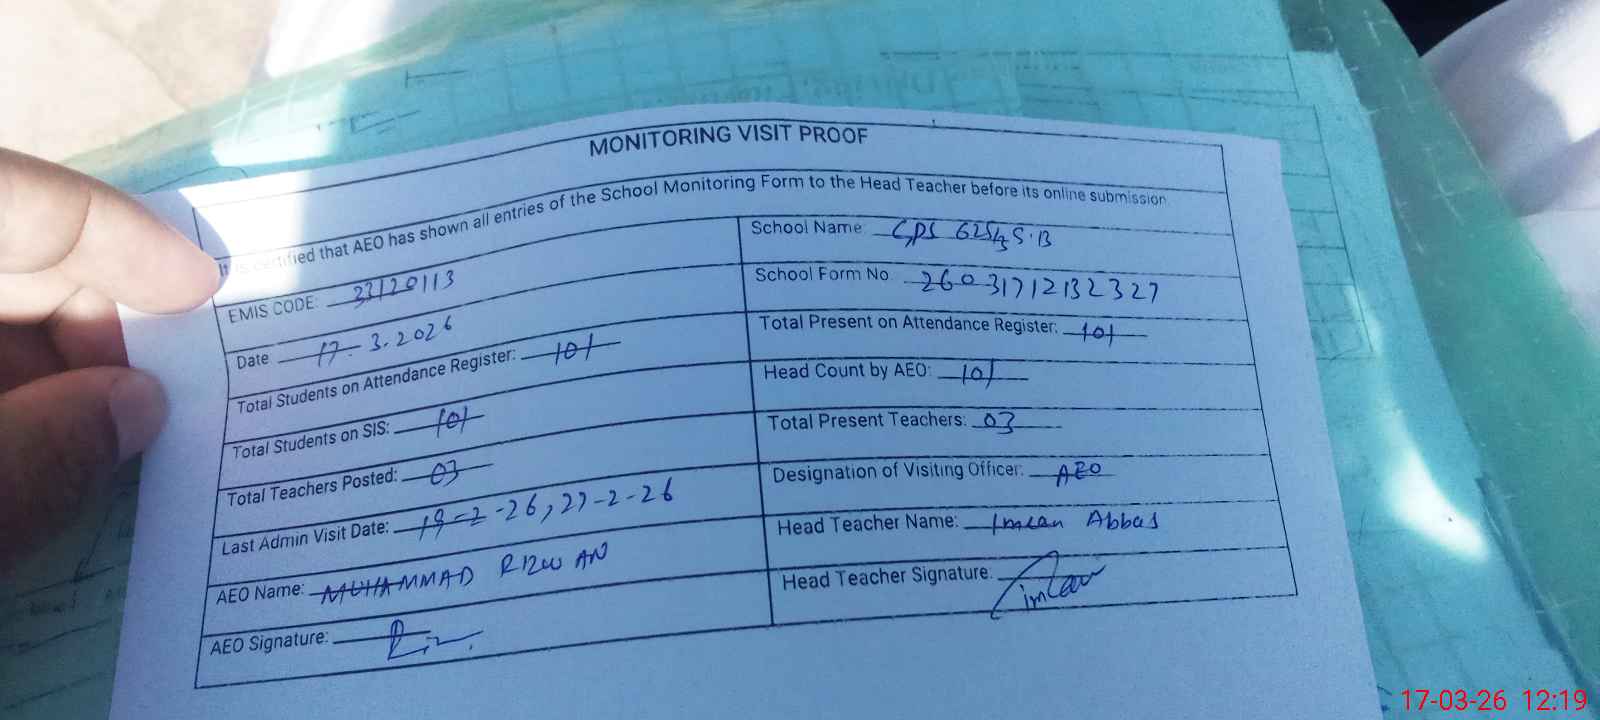 MONITORING VISIT PROOF
It is certified that AEO has shown all entries of the School Monitoring Form to the Head Teacher before its online submission.
EMIS CODE: 33120113
School Name: GPS 625/3 S.B
Date 17.3.2026
School Form No. 26031712132327
Total Students on Attendance Register: 101
Total Present on Attendance Register: 101
Total Students on SIS: 101
Head Count by AEO: 101
Total Teachers Posted: 03
Total Present Teachers: 03
Last Admin Visit Date: 19-2-26, 27-2-26
Designation of Visiting Officer: AEO
AEO Name: MUHAMMAD RIZWAN
Head Teacher Name: Imran Abbas
AEO Signature:
Head Teacher Signature: imran
17-03-26 12:19